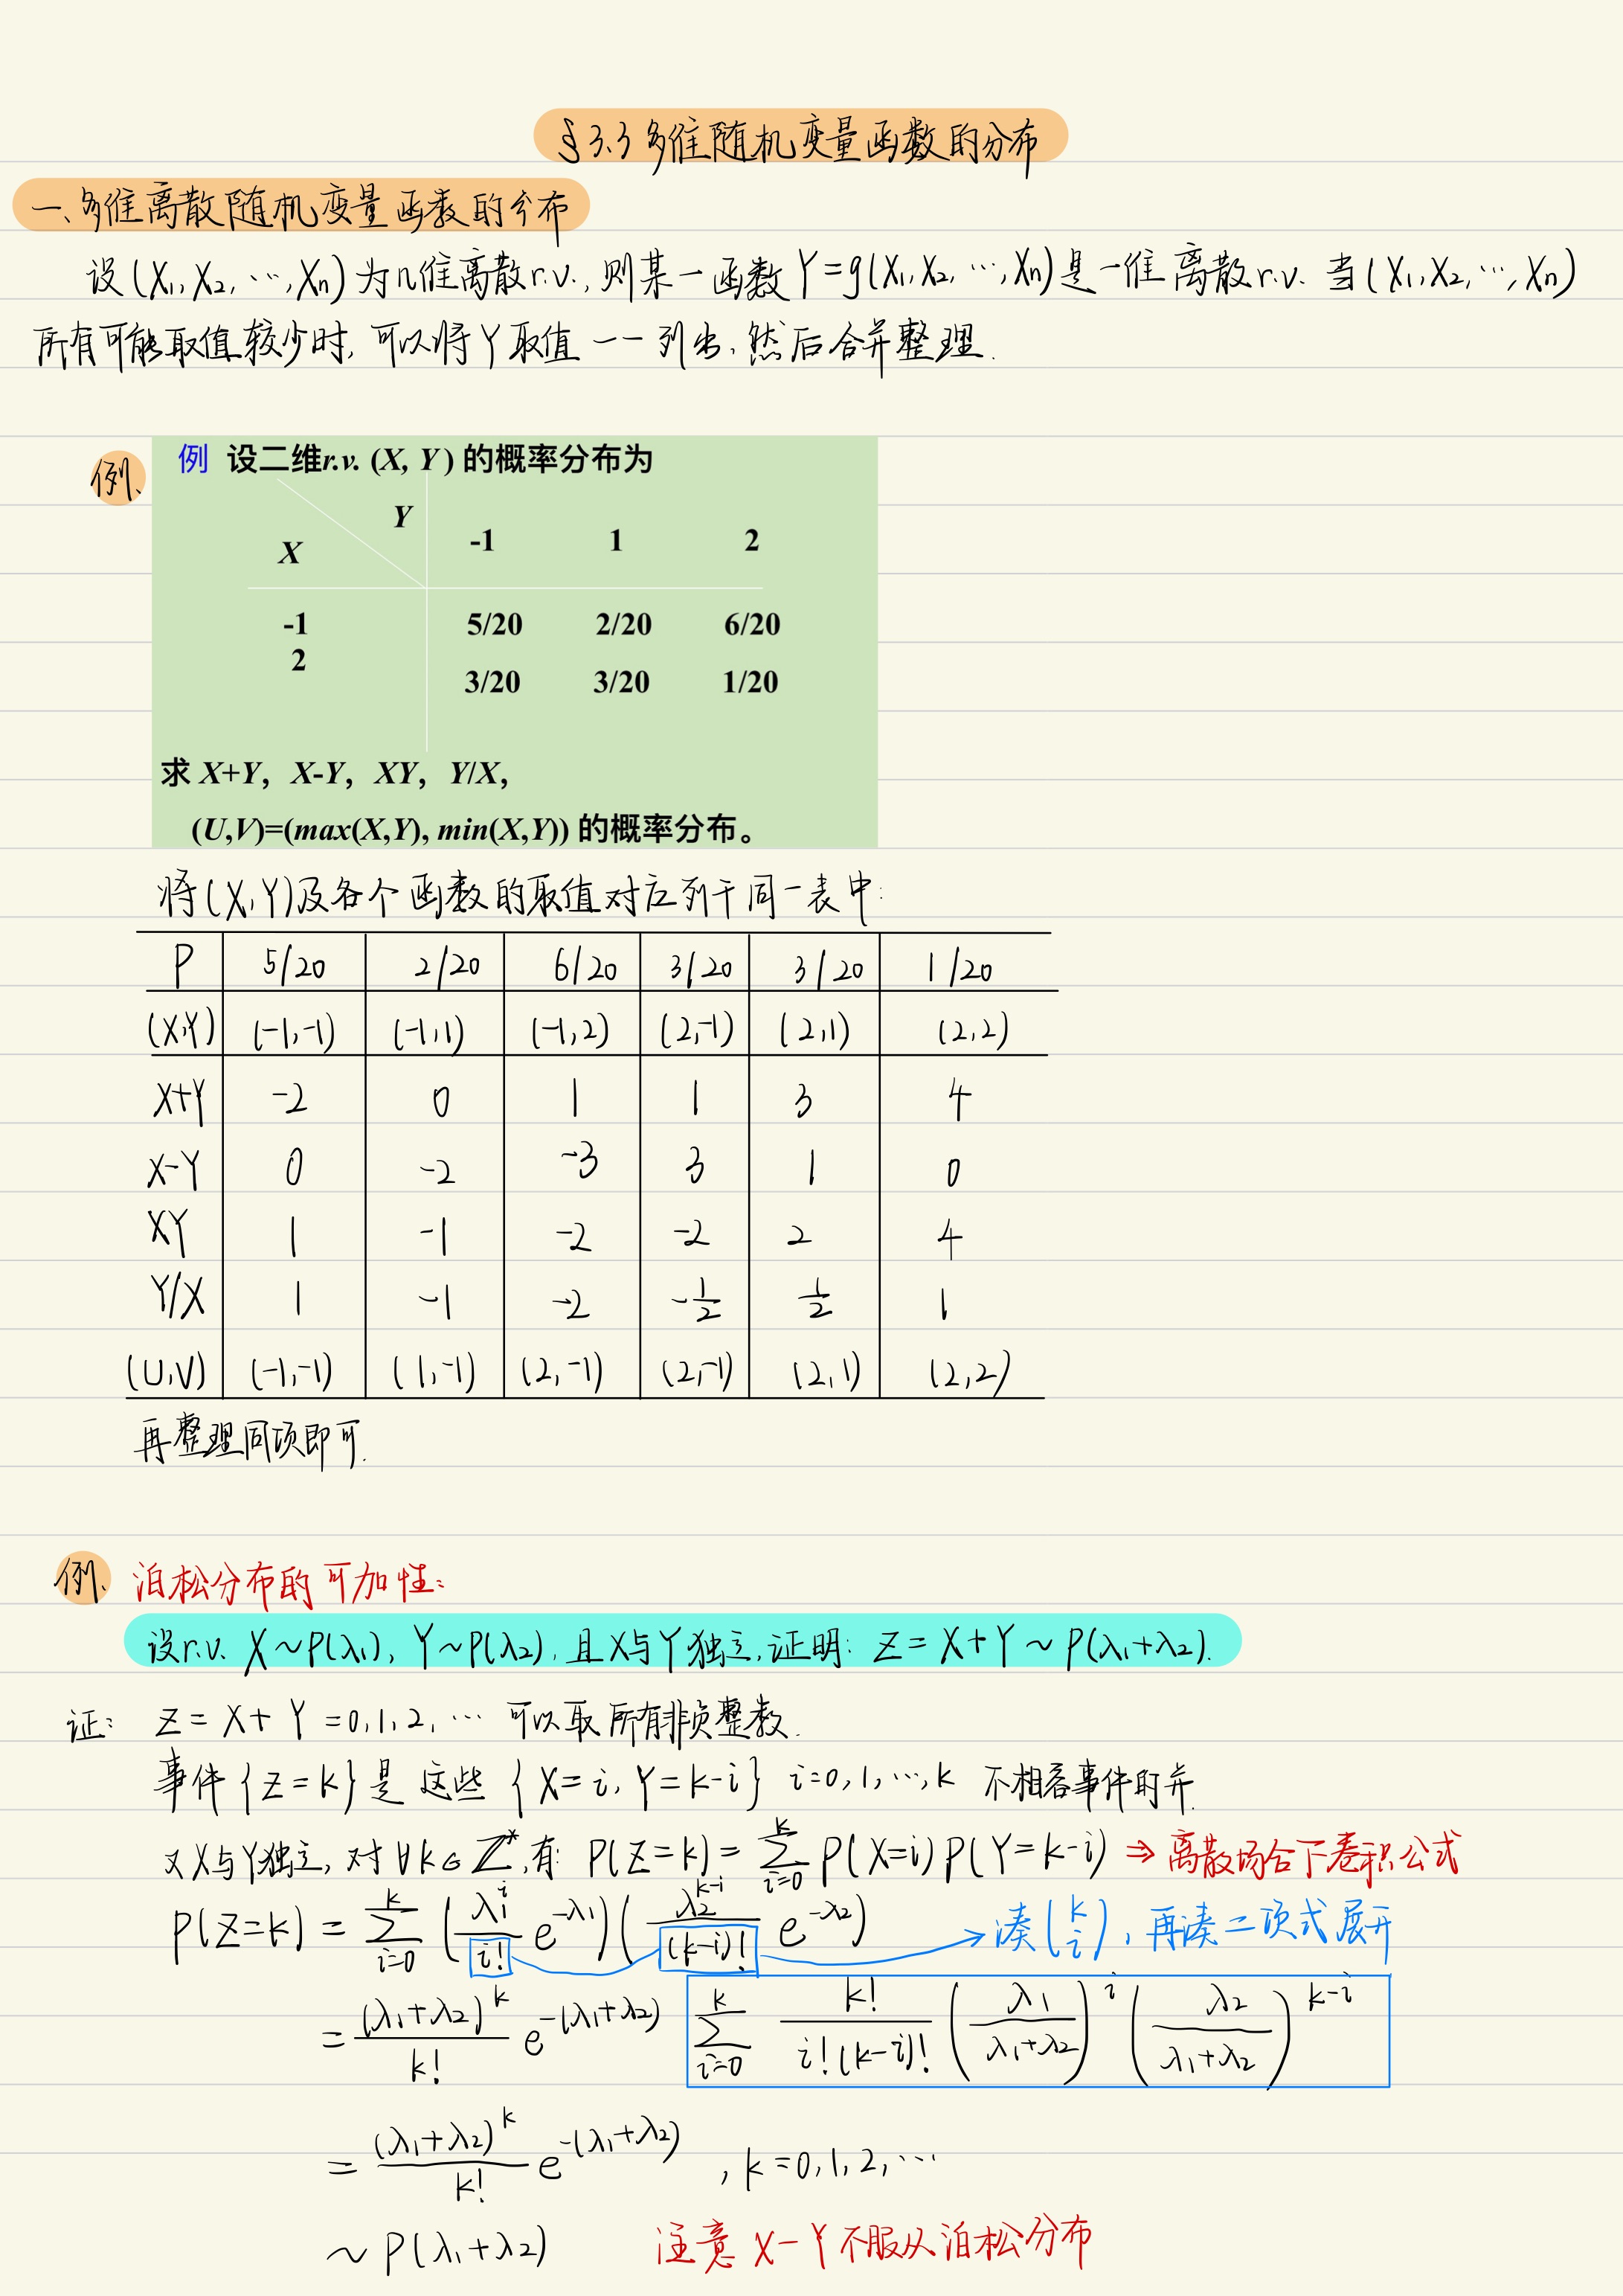 §3.3 多维随机变量函数的分布
一、多维离散随机变量函数的分布
设(X₁,X₂,…,Xn)为n维离散r.v.,则某一函数Y=g(X₁,X₂,…,Xn)是一维离散r.v. 当(X₁,X₂,…,Xn)
所有可能取值较少时,可以将Y取值一一列出,然后合并整理.
例、
例 设二维r.v. (X, Y) 的概率分布为
Y
X -1 1 2
-1 5/20 2/20 6/20
2 3/20 3/20 1/20
求 X+Y, X-Y, XY, Y/X,
(U,V)=(max(X,Y), min(X,Y)) 的概率分布。
将(X,Y)及各个函数的取值对应列于同一表中:
P 5/20 2/20 6/20 3/20 3/20 1/20
(X,Y) (-1,-1) (-1,1) (-1,2) (2,-1) (2,1) (2,2)
X+Y -2 0 1 1 3 4
X-Y 0 -2 -3 3 1 0
XY 1 -1 -2 -2 2 4
Y/X 1 -1 -2 -1/2 1/2 1
(U,V) (-1,-1) (1,-1) (2,-1) (2,-1) (2,1) (2,2)
再整理同项即可.
例、泊松分布的可加性:
设r.v. X~P(λ₁), Y~P(λ₂), 且X与Y独立,证明: Z=X+Y~P(λ₁+λ₂).
证: Z=X+Y=0,1,2,… 可以取所有非负整数.
事件{Z=k}是这些{X=i,Y=k-i} i=0,1,…,k 不相容事件的并
又X与Y独立,对∀k∈Z*,有: P(Z=k)=∑_{i=0}^{k} P(X=i)P(Y=k-i) ⇒ 离散场合下卷积公式
P(Z=k)=∑_{i=0}^{k} (λ₁^i/i! e^{-λ₁})(λ₂^{k-i}/(k-i)! e^{-λ₂}) → 凑(k i),再凑二项式展开
=(λ₁+λ₂)^k/k! e^{-(λ₁+λ₂)} ∑_{i=0}^{k} k!/(i!(k-i)!) (λ₁/(λ₁+λ₂))^i (λ₂/(λ₁+λ₂))^{k-i}
=(λ₁+λ₂)^k/k! e^{-(λ₁+λ₂)} , k=0,1,2,…
~P(λ₁+λ₂) 注意 X-Y不服从泊松分布